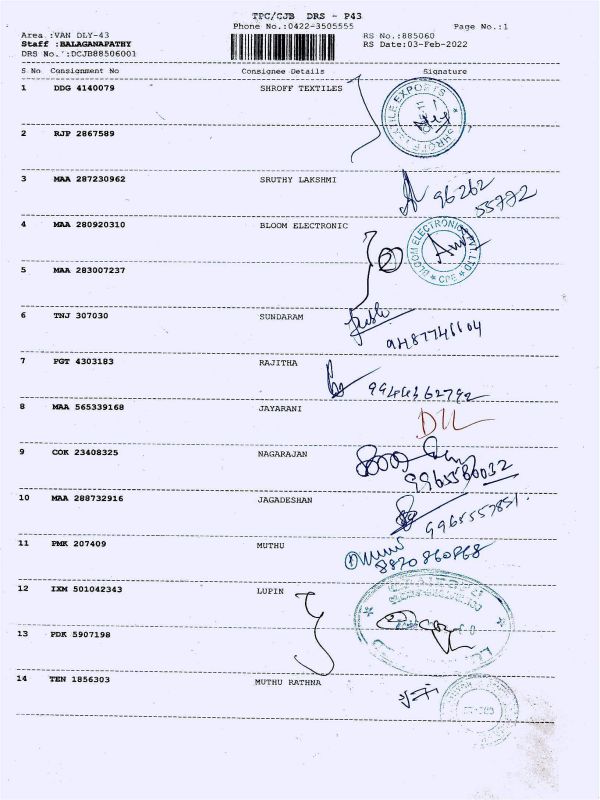 TPC/CJB DRS - P43
Phone No.:0422-3505555
Page No.:1
Area :VAN DLY-43
RS No.:885060
Staff :BALAGANAPATHY
RS Date:03-Feb-2022
DRS No.':DCJB88506001
S No Consignment No Consignee Details Signature
1 DDG 4140079 SHROFF TEXTILES
SHROFF TEXTILE EXPORTS
2 RJP 2867589
3 MAA 287230962 SRUTHY LAKSHMI
96262
55772
4 MAA 280920310 BLOOM ELECTRONIC
BLOOM ELECTRONICS PVT LTD
CPE
2
5 MAA 283007237
6 TNJ 307030 SUNDARAM
7 PGT 4303183 RAJITHA
8 MAA 565339168 JAYARANI
9 COK 23408325 NAGARAJAN
9965580032
10 MAA 288732916 JAGADESHAN
11 PMK 207409 MUTHU
8870860868
12 IXM 501042343 LUPIN
13 PDK 5907198
14 TEN 1856303 MUTHU RATHNA